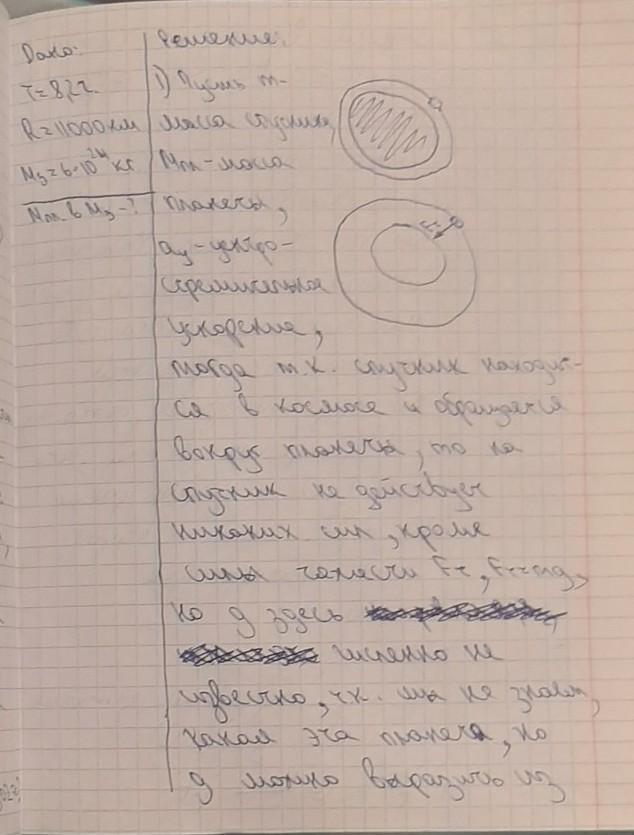 Дано:
T=8,2ч.
R=11000км
Mз=6·10²⁴кг
Mпл в Mз-?
Решение:
1) Пусть m-
масса спутника,
Mпл-масса
планеты,
aц-центро-
стремительное
ускорение,
Fт
тогда т.к. спутник находит-
ся в космосе и обращается
вокруг планеты, то на
спутник не действует
никаких сил, кроме
силы тяжести Fт, Fт=mg,
но g здесь
численно не
известно, т.к. мы не знаем,
какая эта планета, но
g можно выразить из